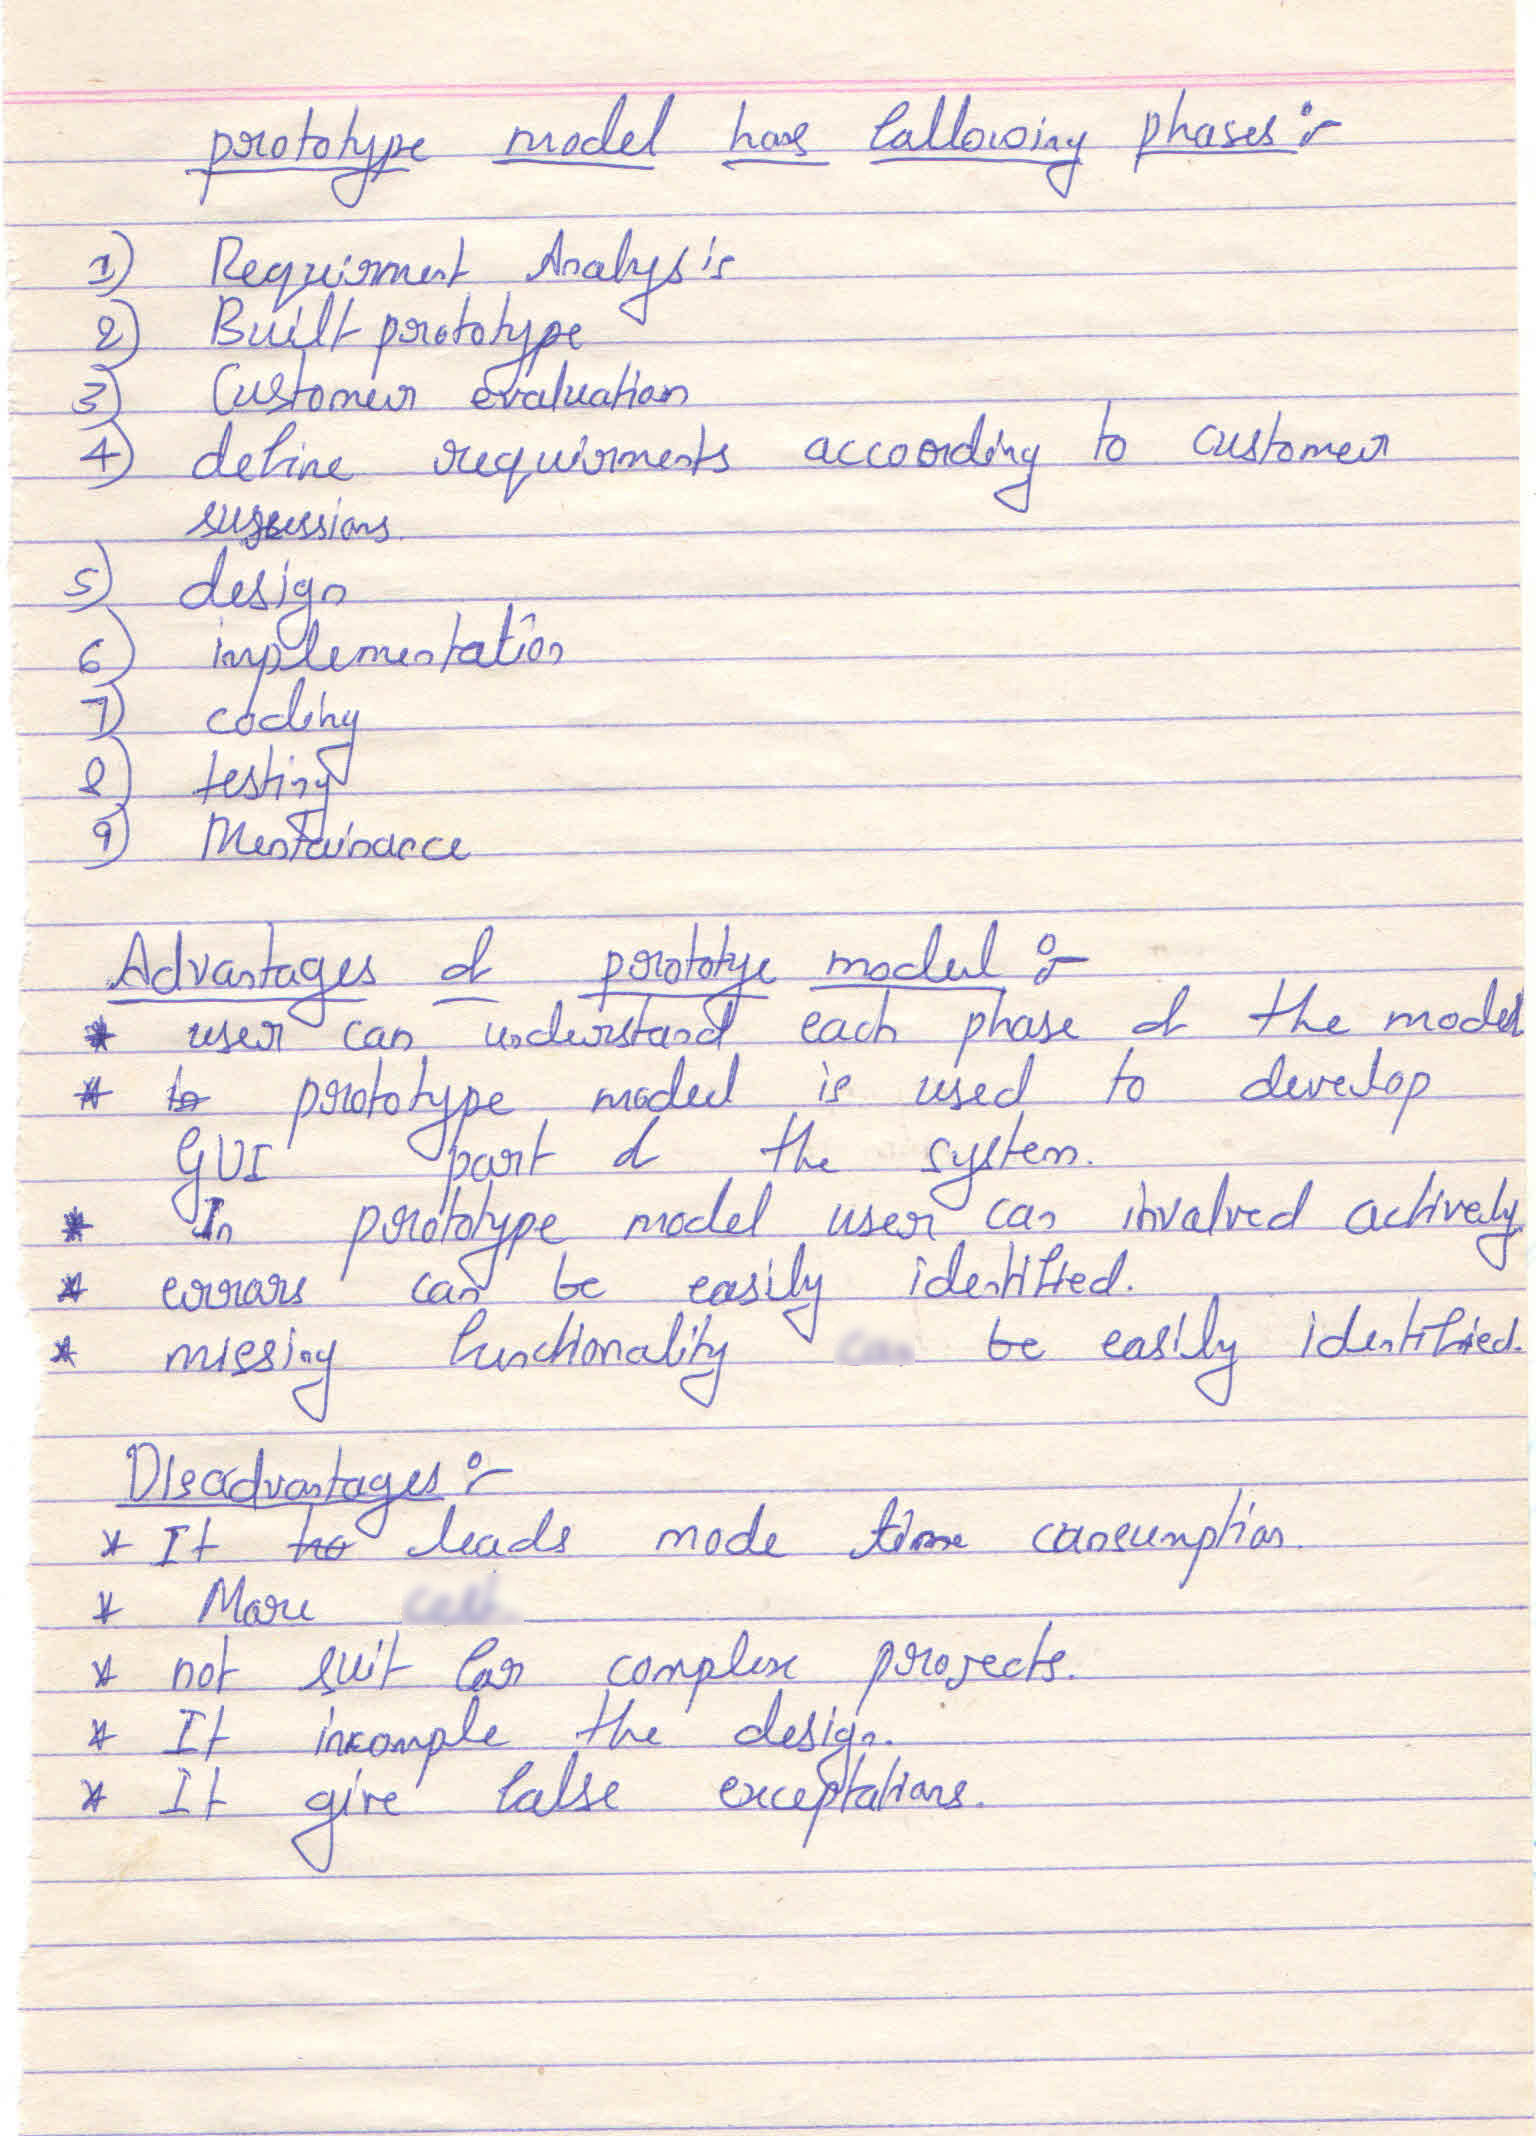 prototype model has following phases :-
1) Requirment Analysis
2) Built prototype
3) Customer evaluation
4) define requirments according to customer
5) design
6) implementation
7) coding
8) testing
9) Mentainance
Advantages of prototye model :-
* user can understand each phase of the model
* to prototype model is used to develop
GUI part of the system.
* In prototype model user can invalved actively.
* errors can be easily identified.
* missing functionality be easily identified.
Disadvantages :-
* It leads mode time consumption.
* More
* not suit for complex projects.
* It incomple the design.
* It give false exceptations.